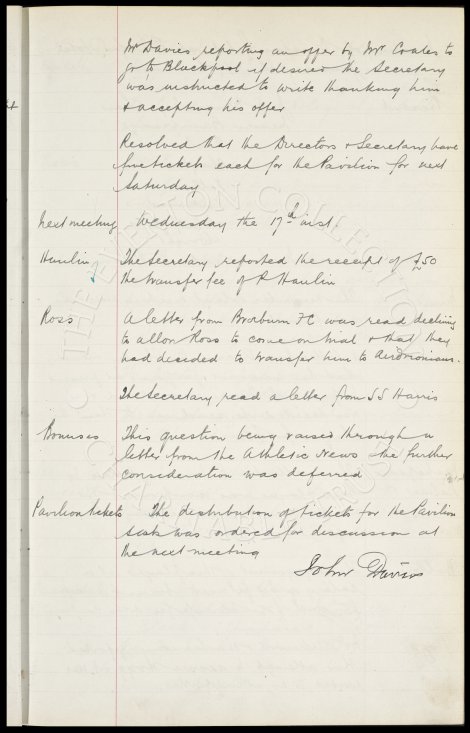 Mr Davies reporting an offer by Mr Coates to
go to Blackpool if desired the Secretary
was instructed to write thanking him
& accepting his offer
Resolved that the Directors & Secretary have
five tickets each for the Pavilion for next
Saturday
Next meeting Wednesday the 17th inst.
Hanlin The Secretary reported the receipt of £50
the transfer fee of P Hanlin
Ross A letter from Broxburn FC was read declining
to allow Ross to come on trial & that they
had decided to transfer him to Airdrionians.
The Secretary read a letter from S S Harris
Bonuses This question being raised through a
letter from the Athletic News the further
consideration was deferred
Pavilion tickets The distribution of tickets for the Pavilion
was ordered for discussion at
the next meeting
John Davies
THE EVERTON COLLECTION
CHARITABLE TRUST